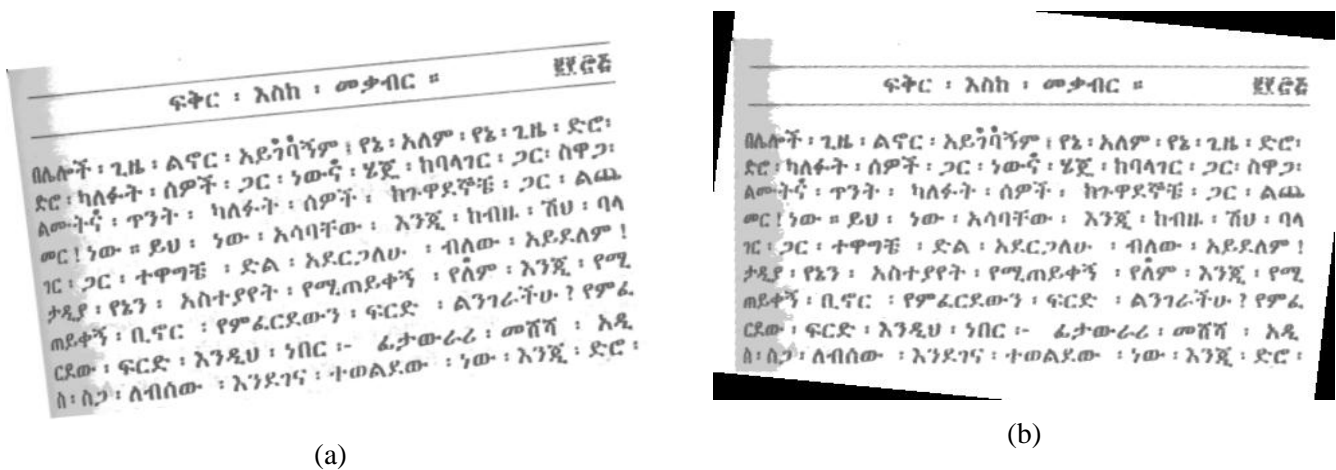 ፍቅር ፡ እስከ ፡ መቃብር ። ፪፻፸፭
በሌሎች ፡ ጊዜ ፡ ልኖር ፡ አይገባኝም ፤ የኔ ፡ አለም ፡ የኔ ፡ ጊዜ ፡ ድሮ፡
ድሮ ፡ ካለፉት ፡ ሰዎች ፡ ጋር ፡ ነውና ፡ ሄጄ ፡ ከባላገር ፡ ጋር፡ ስዋጋ፡
ልሙትና ፡ ጥንት ፡ ካለፉት ፡ ሰዎች ፡ ከጉዋደኞቼ ፡ ጋር ፡ ልጨ
መር ! ነው ። ይህ ፡ ነው ፡ አሳባቸው ፡ እንጂ ፡ ከብዙ ፡ ሽህ ፡ ባላ
ገር ፡ ጋር ፡ ተዋግቼ ፡ ድል ፡ አደርጋለሁ ፡ ብለው ፡ አይደለም !
ታዲያ ፡ የኔን ፡ አስተያየት ፡ የሚጠይቀኝ ፡ የለም ፡ እንጂ ፡ የሚ
ጠይቀኝ ፡ ቢኖር ፡ የምፈርደውን ፡ ፍርድ ፡ ልንገራችሁ ? የምፈ
ርደው ፡ ፍርድ ፡ እንዲህ ፡ ነበር ፡- ፊታውራሪ ፡ መሸሻ ፡ አዲ
ስ ፡ ስጋ ፡ ለብሰው ፡ እንደገና ፡ ተወልደው ፡ ነው ፡ እንጂ ፡ ድሮ ፡
(a)
ፍቅር ፡ እስከ ፡ መቃብር ። ፪፻፸፭
በሌሎች ፡ ጊዜ ፡ ልኖር ፡ አይገባኝም ፤ የኔ ፡ አለም ፡ የኔ ፡ ጊዜ ፡ ድሮ፡
ድሮ ፡ ካለፉት ፡ ሰዎች ፡ ጋር ፡ ነውና ፡ ሄጄ ፡ ከባላገር ፡ ጋር፡ ስዋጋ፡
ልሙትና ፡ ጥንት ፡ ካለፉት ፡ ሰዎች ፡ ከጉዋደኞቼ ፡ ጋር ፡ ልጨ
መር ! ነው ። ይህ ፡ ነው ፡ አሳባቸው ፡ እንጂ ፡ ከብዙ ፡ ሽህ ፡ ባላ
ገር ፡ ጋር ፡ ተዋግቼ ፡ ድል ፡ አደርጋለሁ ፡ ብለው ፡ አይደለም !
ታዲያ ፡ የኔን ፡ አስተያየት ፡ የሚጠይቀኝ ፡ የለም ፡ እንጂ ፡ የሚ
ጠይቀኝ ፡ ቢኖር ፡ የምፈርደውን ፡ ፍርድ ፡ ልንገራችሁ ? የምፈ
ርደው ፡ ፍርድ ፡ እንዲህ ፡ ነበር ፡- ፊታውራሪ ፡ መሸሻ ፡ አዲ
ስ ፡ ስጋ ፡ ለብሰው ፡ እንደገና ፡ ተወልደው ፡ ነው ፡ እንጂ ፡ ድሮ ፡
(b)